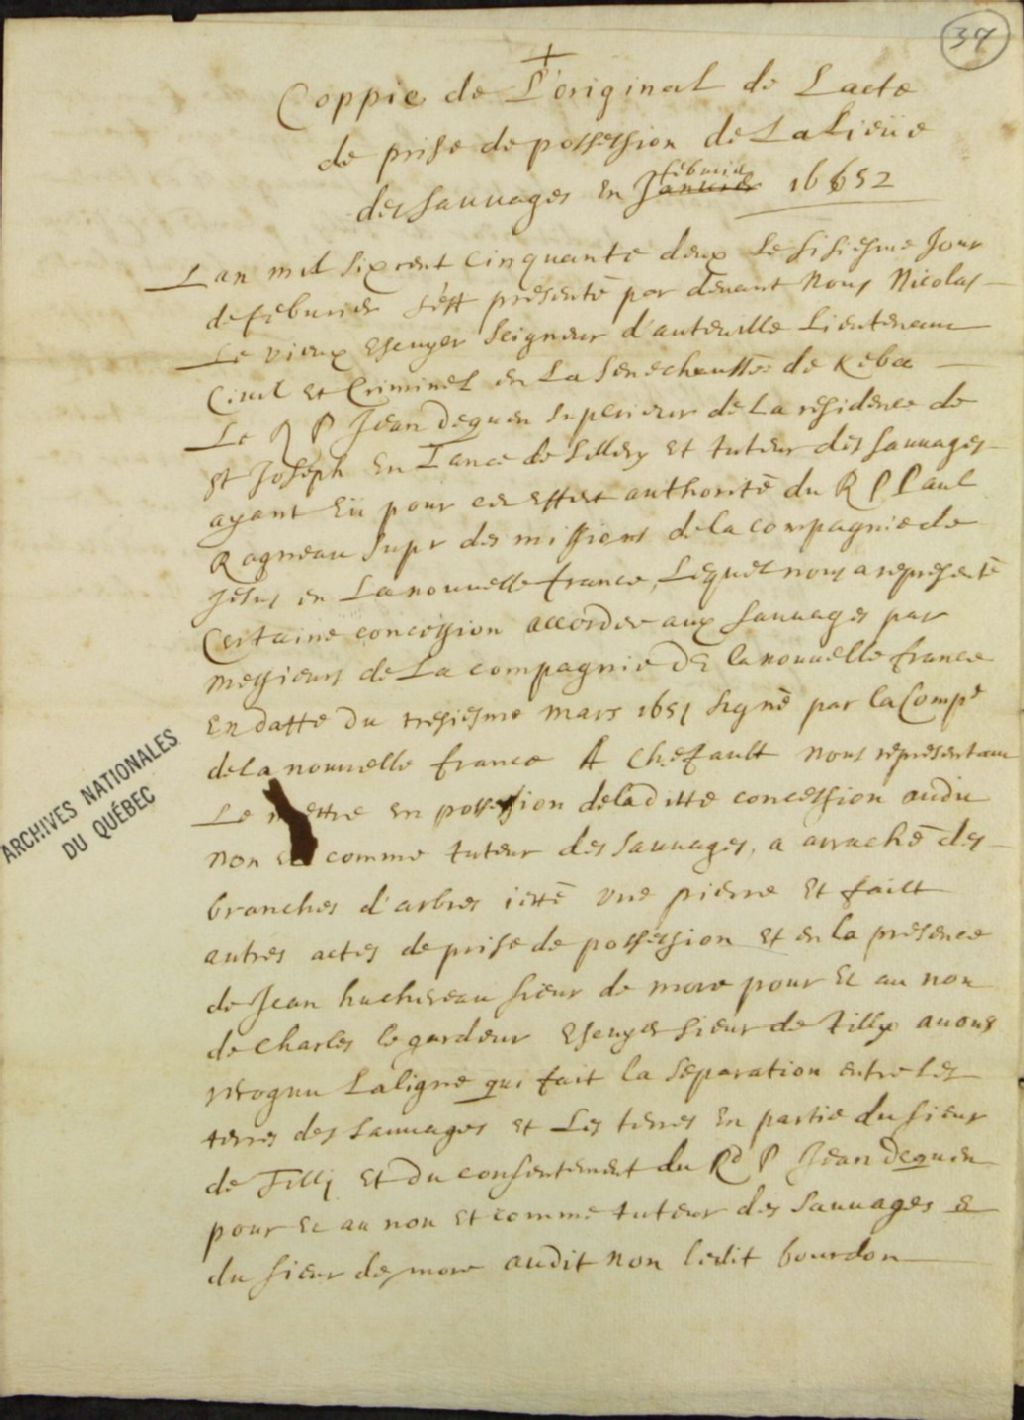 37
+
Coppie de L'original de Lacte
de prise de possession de La Lieüe
des sauuages en Januier feburier 16652
Lan mil six cent cinquante deux Le sisiesme Jour
de feburier s'est presenté par deuant Nous Nicolas
Le vieux Escuyer Seigneur d'auteuille Lieutenant
Ciuil et Criminel en La Senechaussée de Kebec
Le R P Jean dequen superieur de La residence de
st Joseph En Lance de Sillery et tuteur des sauuages
ayant Eü pour cet effect authorité du R P Paul
Ragneau Supr des missions de la compagnie de
Jesus en La nouuelle france, Lequel nous a represeté
Certaine concession accordee aux sauuages par
messieurs de La compagnie de la nouuelle france
En datte du tresiesme mars 1651 signé par la Compe
de la nouuelle france A Cheffault nous representant
Le mettre en possession de laditte concession audit
non et comme tuteur des sauuages, a arraché des
branches d'arbres ietté vne pierre Et faict
autres actes de prise de possession et en la presence
de Jean huchereau sieur de more pour Et au non
de Charles le gardeur Escuyer sieur de Tilly auons
recognu La ligne qui fait la separation entre Les
terres des sauuages et Les terres En partie du sieur
de Tilli et du consentement du Rd P Jean dequen
pour Et au non Et comme tuteur des Sauuages &
du sieur de more audit non ledit bourdon
ARCHIVES NATIONALES
DU QUÉBEC